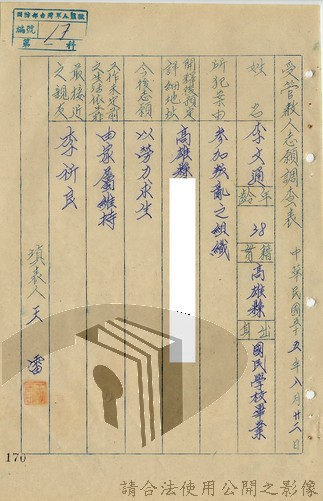 國防部台灣軍人監獄
編號 17
第 一 科
受管教人志願調查表 中華民國五十五年八月廿三日
姓名 李文通 年齡 38 籍貫 高雄縣 出身 國民學校畢業
所犯案由 參加叛亂之組織
開釋後指定詳細地址 高雄縣
今後志願 以勞力求生
工作未定前之生活依靠 由家屬維持
最接近之親友 李新良
填表人 王雷
170
請合法使用公開之影像